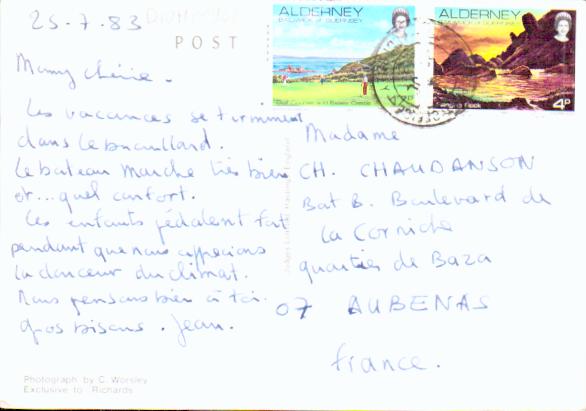 25-7.83
POST
CARD
Mamy chérie.
Les vacances se terminent
dans le brouillard.
Le bateau marche très bien
et... quel confort.
Les enfants pédalent fort
pendant que nous apprécions
la douceur du climat.
Nous pensons bien à toi.
gros bisous. Jean.
ALDERNEY
BAILIWICK OF GUERNSEY
ALDERNEY
BAILIWICK OF GUERNSEY
4P
Madame
CH. CHAUDANSON
Bat B. Boulevard de
la Corniche
quartier de Baza
07 AUBENAS
France.
Photograph by C. Worsley
Exclusive to Richards